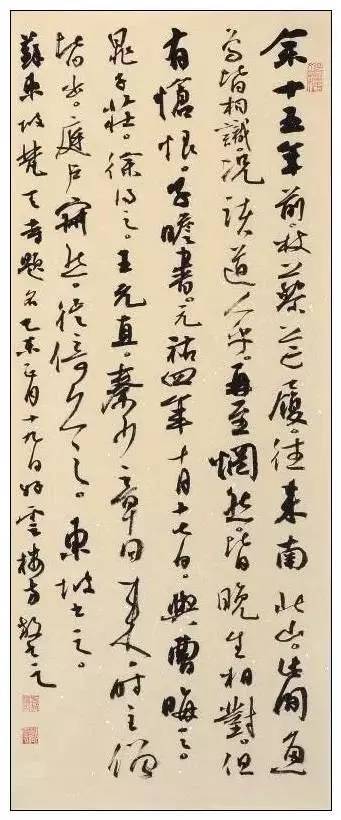 余十五年前。杖藜芒履。往来南北山。此間魚
鳥皆相識。况諸道人乎。再至惘然。皆晚生相對。但
有愴恨。子瞻書。元祐四年十月十七日。與曹晦之。
晁子莊。徐得之。王元直。秦少章同来。時主僧
皆出。庭户寂然。徙倚久之。東坡書之。
蘇東坡梵天寺題名乙未正月十九日雲樓方